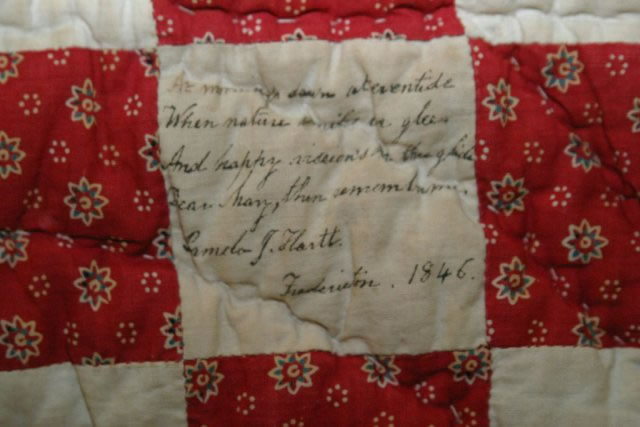 At morning's dawn at eventide
When nature smiles in glee
And happy visions thro' glide
Dear Mary, then remember me.
Pamela J. Hartt.
Fredericton. 1846.